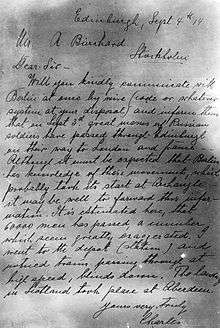 Edinburgh, Sept 4th 14
Mr A Burchard
Stockholm
Dear Sir-
Will you kindly communicate with
Berlin at once by wire (code or whatever
system at your disposal) and inform them
that on Sept 3rd great masses of Russian
soldiers have passed through Edinburgh
on their way to London and France.
Although it must be expected that Berlin
has knowledge of these movements, which
probably took its start at Archangel,
it may be well to forward this infor-
mation. It is estimated here, that
60000 men have passed, numbers
which seem greatly exaggerated. I
went to the depot (station) and
noticed trains passing through at
high speed, blinds down. The landing
in Scotland took place at Aberdeen.
Yours very truly
Charles